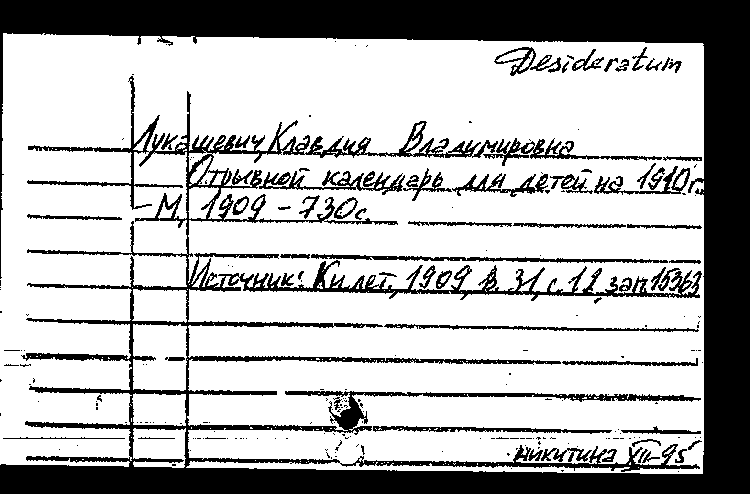 Desideratum
Лукашевич, Клавдия Владимировна
Отрывной календарь для детей на 1910 г.
— М, 1909 - 730 с.
Источник: Кн. лет., 1909, в. 31, с. 12, зап. 15363
никитина XII-95